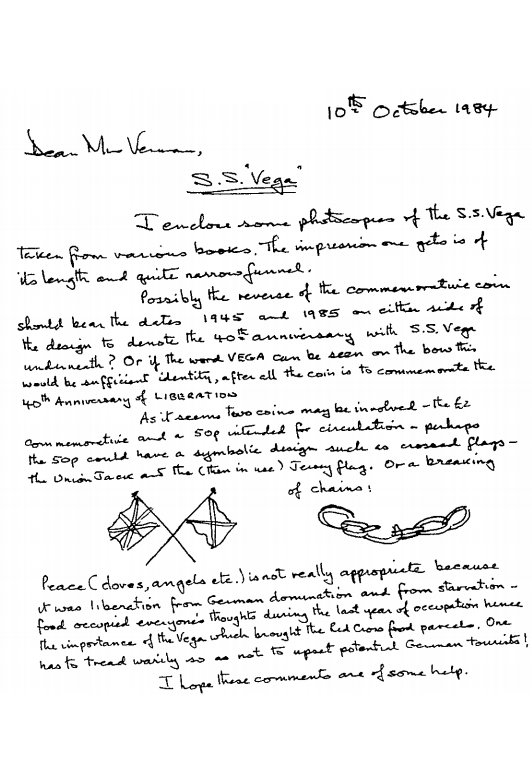 10th October 1984
Dear Mr Verman,
S.S. "Vega"
I enclose some photocopies of the S.S. Vega
taken from various books. The impression one gets is of
its length and quite narrow funnel.
Possibly the reverse of the commemorative coin
should bear the dates 1945 and 1985 on either side of
the design to denote the 40th anniversary with S.S. Vega
underneath? Or if the word VEGA can be seen on the bow this
would be sufficient identity, after all the coin is to commemorate the
40th Anniversary of LIBERATION
As it seems two coins may be involved - the £2
commemorative and a 50p intended for circulation - perhaps
the 50p could have a symbolic design such as crossed flags -
the Union Jack and the (then in use) Jersey flag. Or a breaking
of chains!
Peace (doves, angels etc.) is not really appropriate because
it was liberation from German domination and from starvation -
food occupied everyone's thoughts during the last year of occupation hence
the importance of the Vega which brought the Red Cross food parcels. One
has to tread warily so as not to upset potential German tourists!
I hope these comments are of some help.